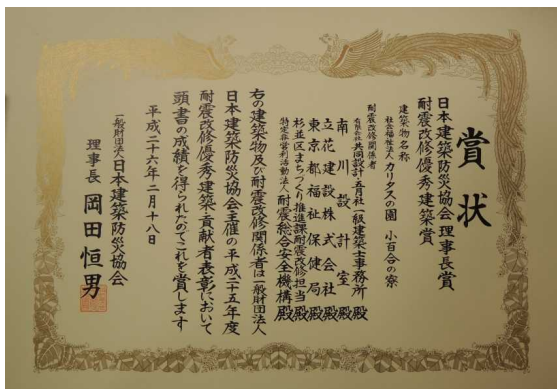 賞状
日本建築防災協会理事長賞
耐震改修優秀建築賞
建築物名称
社会福祉法人 カリタスの園 小百合の寮
耐震改修関係者
有限会社共同設計・五月社一級建築士事務所 殿
南川設計室 殿
立花建設株式会社 殿
東京都福祉保健局 殿
杉並区まちづくり推進課耐震改修担当 殿
特定非営利活動法人 耐震総合安全機構 殿
右の建築物及び耐震改修関係者は一般財団法人
日本建築防災協会主催の平成二十五年度
耐震改修優秀建築・貢献者表彰において
頭書の成績を得られたのでこれを賞します
平成二十六年二月十八日
一般財団法人日本建築防災協会
理事長 岡田恒男